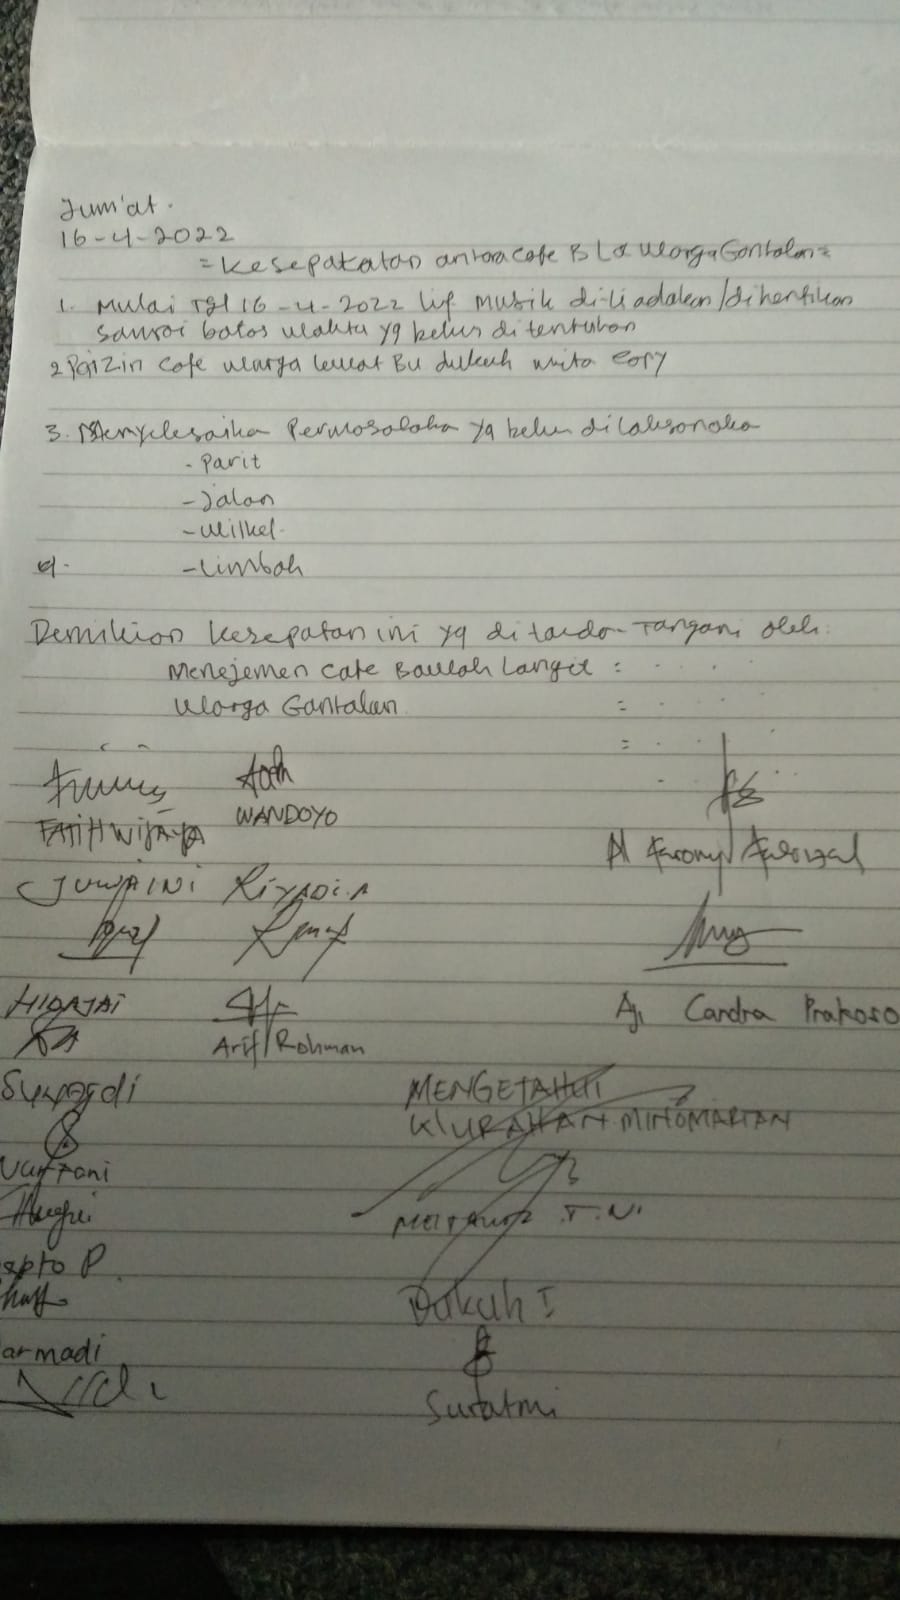 Jum'at.
16-4-2022
= Kesepakatan antara cafe BL & Warga Gontalan =
1. Mulai Tgl 16-4-2022 lif musik di-tiadakan/dihentikan
sampai batas waktu yg belum ditentukan
2. izin cafe warga lewat Bu dukuh copy
3. Menyelesaika Permasalaha yg belum dilaksanaka
- Parit
- Jalan
- Limbah
4.
Demikian kesepatan ini yg di tanda-Tangani oleh:
Menejemen Cafe Bawah Langit :
Warga Gantalan :
:
FATIH WIJAYA WANDOYO
JUWAINI RIYADI.A
HIDAJAI Arif Rohman
Aji Candra Prakoso
Suyardi
MENGETAHUI
KLURAHAN MINOMARTAN
T.N.
apto P
Dukuh I
armadi
Suratmi